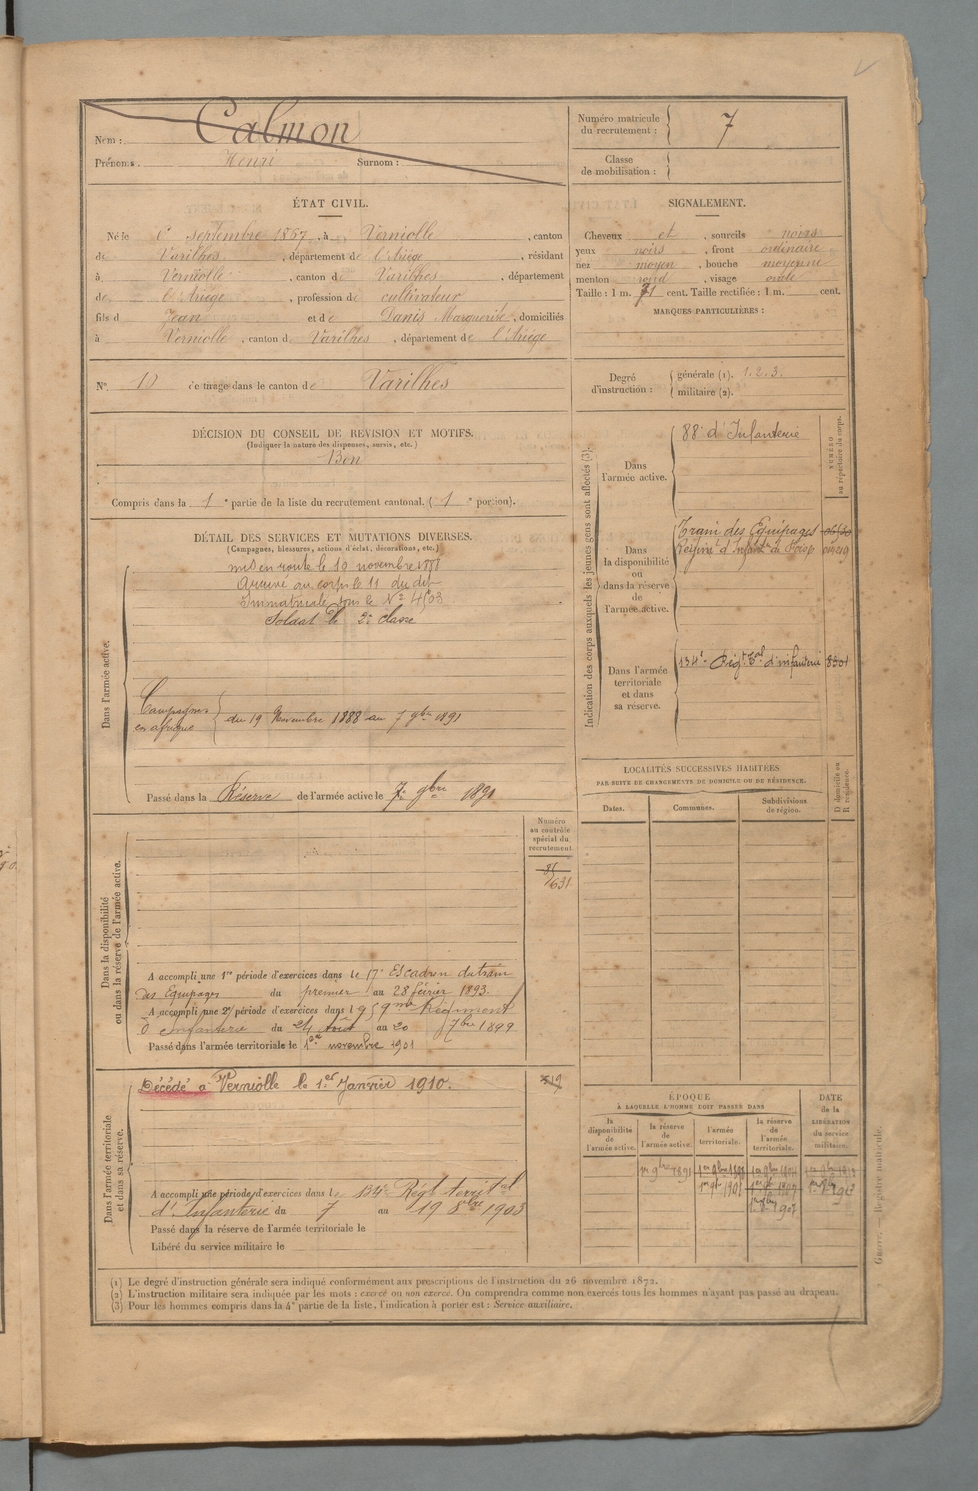 Nom : Calmon
Prénoms : Henri Surnom :
Numéro matricule du recrutement : 7
Classe de mobilisation :
ÉTAT CIVIL.
Né le 6 septembre 1867, à Verniolle, canton
de Varilhes, département de l'Ariège, résidant
à Verniolle, canton de Varilhes, département
de l'Ariège, profession de cultivateur
fils de Jean et de Danis Marguerite, domiciliés
à Verniolle, canton de Varilhes, département de l'Ariège
N° 10 de tirage dans le canton de Varilhes
SIGNALEMENT.
Cheveux et, sourcils noirs
yeux noirs, front ordinaire
nez moyen, bouche moyenne
menton rond, visage ovale
Taille : 1 m. 71 cent. Taille rectifiée : 1 m. cent.
MARQUES PARTICULIÈRES :
Degré d'instruction : générale (1). 1.2.3.
militaire (2).
DÉCISION DU CONSEIL DE REVISION ET MOTIFS.
(Indiquer la nature des dispenses, sursis, etc.)
Bon
Compris dans la 1re partie de la liste du recrutement cantonal. (1e portion).
DÉTAIL DES SERVICES ET MUTATIONS DIVERSES.
(Campagnes, blessures, actions d'éclat, décorations, etc.)
Dans l'armée active.
mis en route le 10 novembre 1888
Arrivé au corps le 11 du dit
Immatriculé sous le N° 4503
Soldat de 2e classe
Campagnes en afrique du 19 Novembre 1888 au 7 9bre 1891
Passé dans la Réserve de l'armée active le 7 9bre 1891
Indication des corps auxquels les jeunes gens sont affectés (3).
NUMÉRO au répertoire du corps.
Dans l'armée active.
88e d'Infanterie
Dans la disponibilité ou dans la réserve de l'armée active.
Train des Equipages
Régimt d'Infant. de
Dans l'armée territoriale et dans sa réserve.
134e Régt Tal d'infanterie 8501
LOCALITÉS SUCCESSIVES HABITÉES
PAR SUITE DE CHANGEMENTS DE DOMICILE OU DE RÉSIDENCE.
Dates. Communes. Subdivisions de région. D domicile ou R résidence.
Dans la disponibilité ou dans la réserve de l'armée active.
Numéro au contrôle spécial du recrutement.
631
A accompli une 1re période d'exercices dans le 17e Escadron du train
des Equipages du premier au 28 février 1893.
A accompli une 2e période d'exercices dans le 59me Régiment
d'Infanterie du 24 Août au 20 7bre 1899
Passé dans l'armée territoriale le 1er novembre 1901
Dans l'armée territoriale et dans sa réserve.
Décédé à Verniolle le 1er Janvier 1910.
519
A accompli une période d'exercices dans le 134e Régt territal
d'Infanterie du 7 au 19 8bre 1903
Passé dans la réserve de l'armée territoriale le
Libéré du service militaire le
ÉPOQUE
À LAQUELLE L'HOMME DOIT PASSER DANS
la disponibilité de l'armée active. la réserve de l'armée active. l'armée territoriale. la réserve de l'armée territoriale.
DATE de la LIBÉRATION du service militaire.
1er 9bre 1891
1er 9bre 1901
1er 9bre 1907
(1) Le degré d'instruction générale sera indiqué conformément aux prescriptions de l'instruction du 26 novembre 1872.
(2) L'instruction militaire sera indiquée par les mots : exercé ou non exercé. On comprendra comme non exercés tous les hommes n'ayant pas passé au drapeau.
(3) Pour les hommes compris dans la 4e partie de la liste, l'indication à porter est : Service auxiliaire.
Guerre. — Registre matricule.